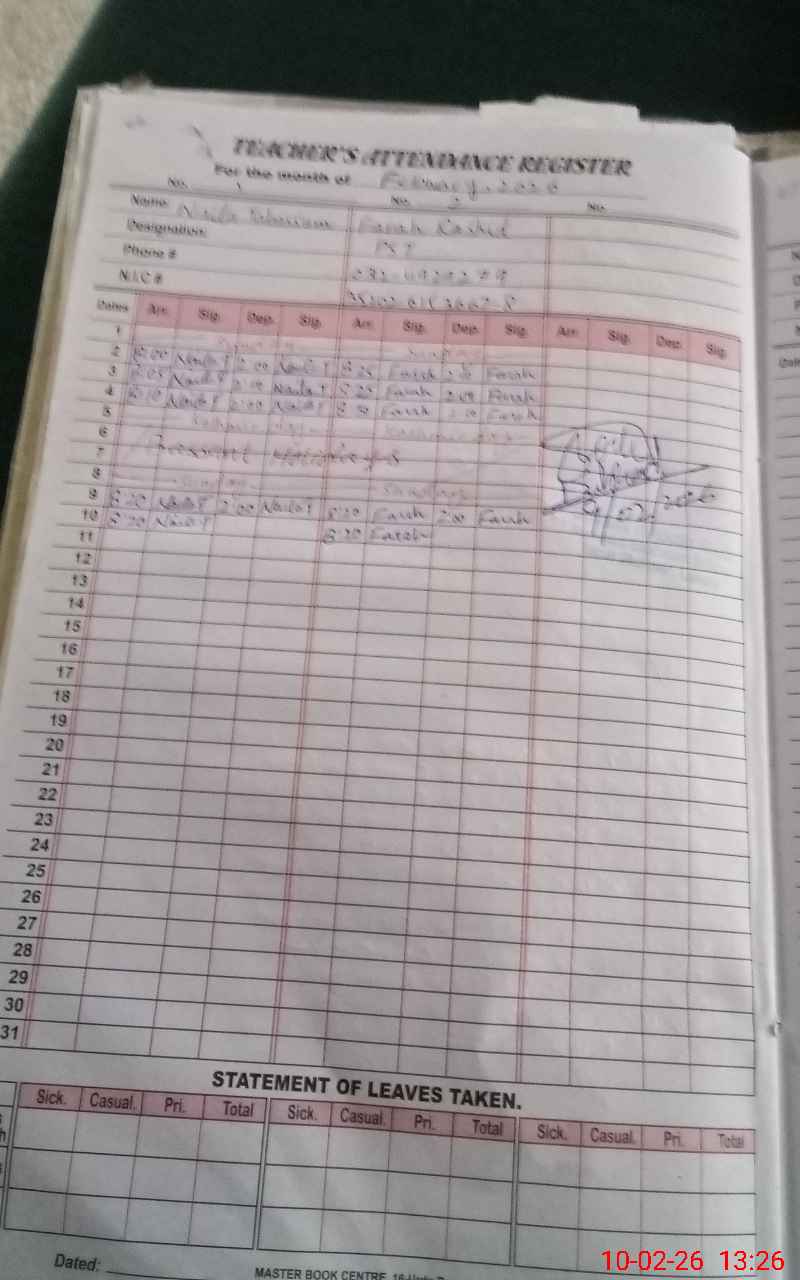 TEACHER'S ATTENDANCE REGISTER
For the month of February, 2026
No. 1 No. 2 No.
Name Naila Farah Rashid
Designation PST
Phone #
N.I.C #
Dates Arr. Sig. Dep. Sig. Arr. Sig. Dep. Sig. Arr. Sig. Dep. Sig.
1 Sunday
2 8:00 Naila T 2:00 Naila T 8:25 Farah 2:00 Farah
3 8:05 Naila T 2:00 Naila T 8:25 Farah 2:00 Farah
4 8:10 Naila T 2:00 Naila T 8:30 Farah 2:00 Farah
5 Kashmir Day Kashmir Day
6
7
8 Sunday Sunday
9 8:20 Naila T 2:00 Naila T 8:20 Farah 2:00 Farah
10 8:20 Naila T 8:30 Farah
11
12
13
14
15
16
17
18
19
20
21
22
23
24
25
26
27
28
29
30
31
9/02/2026
STATEMENT OF LEAVES TAKEN.
Sick. Casual. Pri. Total Sick. Casual. Pri. Total Sick. Casual. Pri. Total
Dated:
MASTER BOOK CENTRE
10-02-26 13:26